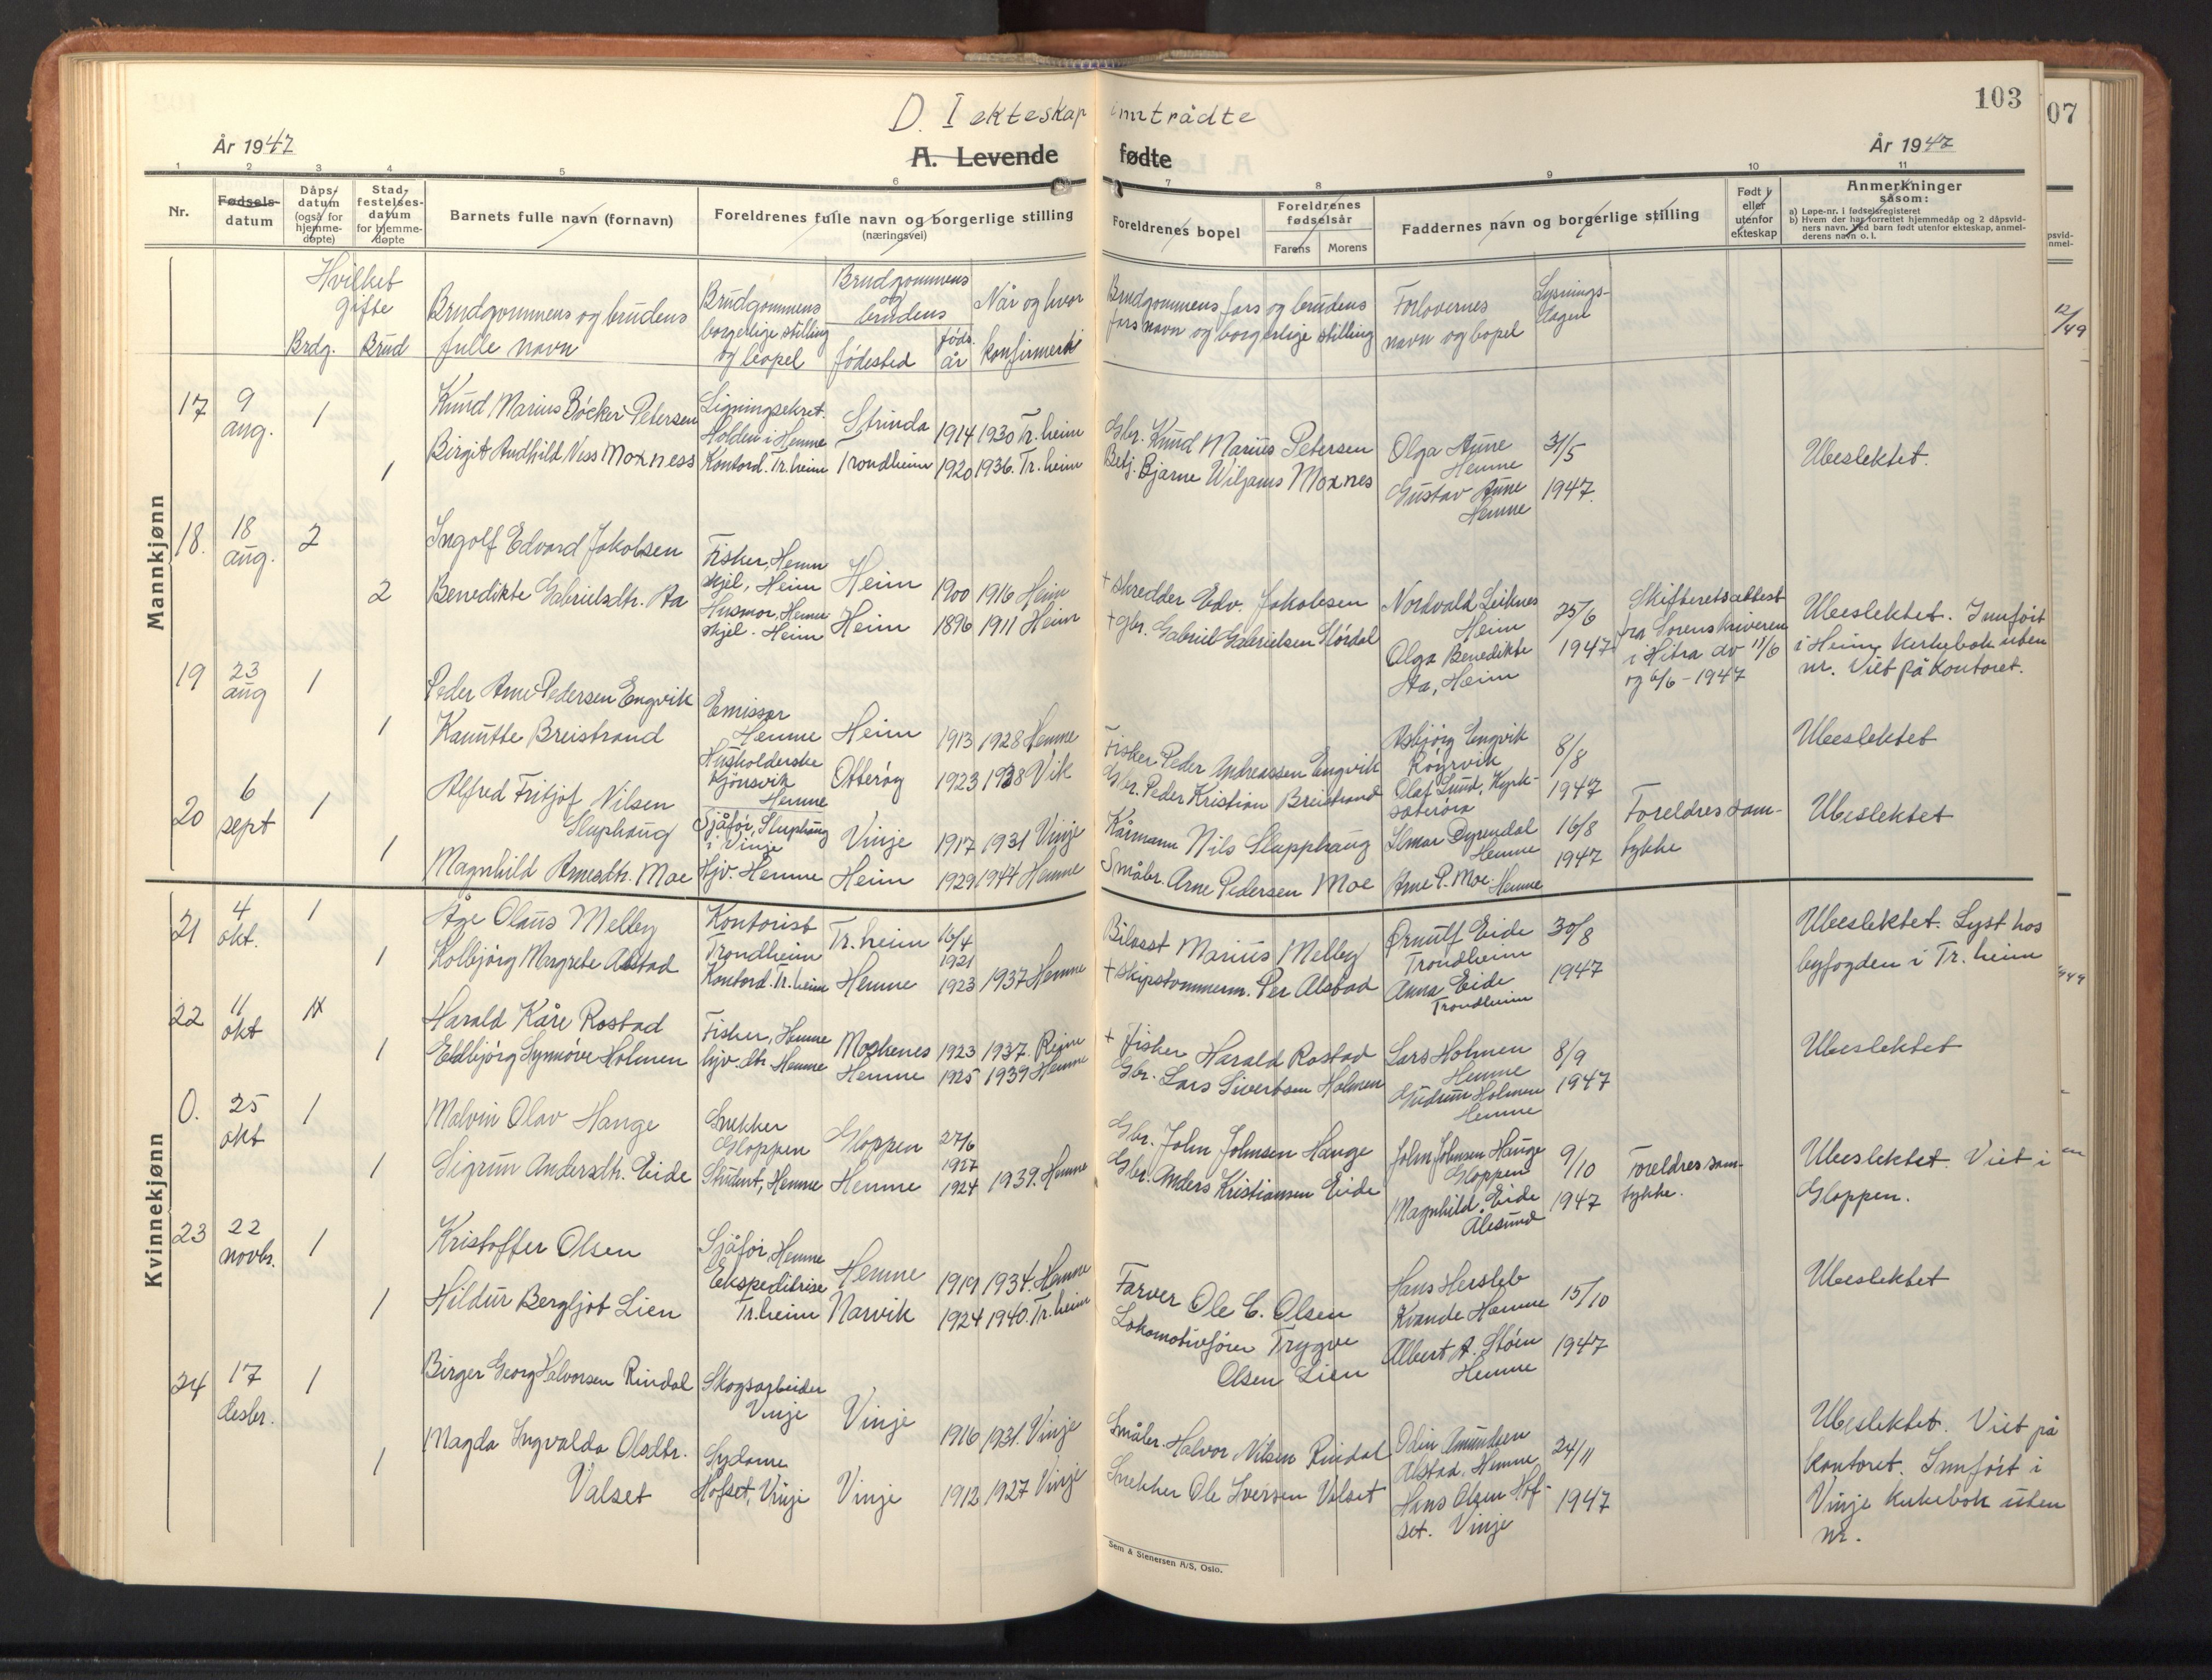 103
07
D. I ekteskap inntrådte
År 1947
A. Levende fødte
År 1947
1 2 3 4 5 6 7 8 9 10 11
Nr.
Fødsels-
datum
Dåps-
datum
(også for
hjemme-
døpte)
Stad-
festelses-
datum
for hjemme-
døpte
Barnets fulle navn (fornavn)
Foreldrenes fulle navn og borgerlige stilling
(næringsvei)
Foreldrenes bopel
Foreldrenes
fødselsår
Farens Morens
Faddernes navn og borgerlige stilling
Født i
eller
utenfor
ekteskap
Anmerkninger
såsom:
a) Løpe-nr. i fødselsregisteret
b) Hvem der har forrettet hjemmedåp og 2 dåpsvid-
ners navn. Ved barn født utenfor ekteskap, anmel-
derens navn o. l.
Hvilket
gifte
Brdg. Brud
Brudgommens og brudens
fulle navn
Brudgommens
borgerlige stilling
og bopel
Brudgommens
og
brudens
fødested
føds.
år
Når og hvor
konfirmert
Brudgommens fars og brudens
fars navn og borgerlige stilling
Forlovernes
navn og bopel
Lysnings-
dagen
12/49
Mannkjønn
17
9
aug.
1
Knud Marius Böcker Petersen
Ligningsekret.
Holden i Hemne
Strinda
1914 1930 Tr.heim
Gbr. Knud Marius Petersen
Olga Aune
Hemne
31/5
1
Birgit Andhild Vess Moxness
Kontord. Tr.heim
Trondheim
1920 1936. Tr.heim
Betj. Bjarne Wiljams Moxnes
Gustav Aune
Hemne
1947.
Ubeslektet.
18.
18
aug.
2
Ingolf Edvard Jakobsen
Fisker, Hemn
skjel, Heim
Heim
1900 1916 Heim
+ skredder Edv. Jakobsen
Nordvald Leiknes
Heim
25/6
2
Benedikte Gabrielsdtr. Aa
Husmor, Hemn
skjel. Heim
Heim
1896 1911 Heim
+ gbr. Gabriel Gabrielsen Stordal
Olga Benedikte
Aa, Heim
1947
Skifteretsattest
fra Sorenskriveren
i Hitra av 11/6
og 6/6 - 1947
Ubeslektet. Innført
i Heim kirkebok uten
nr. Viet på kontoret.
19
23
aug
1
Peder Arne Pedersen Engvik
Emissær
Hemne
Heim
1913 1928 Hemne
Fisker Peder Andreassen Engvik
Asbjørg Engvik
Røyrvik
8/8
1
Kanutte Breistrand
Husholderske
Kjønsvik
Hemne
Otterøy
1923 1938 Vik
Gbr. Peder Kristian Breistrand
Olaf Lund, Kyrk-
sæterøra
1947
Ubeslektet
20
6
sept
1
Alfred Fritjof Nilsen
Sluphaug
Sjåfør, Sluphaug
i Vinje
Vinje
1917 1931 Vinje
Kårmann Nils Slupphaug
Ilmar Dyrendal
Hemne
16/8
1
Magnhild Arnesdtr. Moe
Hjv. Hemne
Heim
1929 1944 Hemne
Småbr. Arne Pedersen Moe
Arne P. Moe. Hemne
1947
Foreldres sam-
tykke
Ubeslektet
Kvinnekjønn
21
4
okt.
1
Åge Olaus Melby
Kontorist
Trondheim
Tr.heim
16/4
1921
Bilasst Marius Melby
Ørnulf Eide
Trondheim
30/8
1
Kolbjørg Margrete Alstad
Kontord. Tr.heim
Hemne
1923 1937 Hemne
+ skipstømmerm. Per Alstad
Anna Eide
Trondheim
1947
Ubeslektet. Lyst hos
byfogden i Tr.heim
22
11
okt
1
Harald Kåre Rostad
Fisker, Hemne
Moskenes
1923 1937. Reine
+ fisker Harald Rostad
Lars Holmen
Hemne
8/9
1
Eldbjørg Synnøve Holmen
hjv. dtr. Hemne
Hemne
1925 1939 Hemne
Gbr. Lars Sivertsen Holmen
Gudrun Holmen
Hemne
1947
Ubeslektet
0.
25
okt
1
Malvin Olav Hauge
Snekker
Gloppen
Gloppen
27/6
1927
Gbr. John Johnsen Hauge
John Johnsen Hauge
Gloppen
9/10
1
Sigrun Andersdtr. Eide
Student, Hemne
Hemne
1924 1939. Hemne
Gbr. Anders Kristiansen Eide
Magnhild Eide
Ålesund
1947
Foreldres sam-
tykke.
Ubeslektet. Viet i
Gloppen.
23
22
novbr.
1
Kristoffer Olsen
Sjåfør, Hemne
Hemne
1919 1934. Hemne
Farver Ole C. Olsen
Hans Hersleb
Kvande Hemne
15/10
1
Hildur Bergljot Lien
Ekspeditrise
Tr.heim
Narvik
1924 1940. Tr.heim
Lokomotivfører Trygve
Olsen Lien
Albert A. Støen
Hemne
1947
Ubeslektet
24
17
desbr.
1
Birger Georg Halvorsen Rindal
Skogsarbeider
Vinje
Vinje
1916 1931. Vinje
Småbr. Halvor Nilsen Rindal
Odin Amundsen
Alstad, Hemne
24/11
1
Magda Ingvalda Olsdtr.
Valset
Sydame
Hofset, Vinje
Vinje
1912 1927 Vinje
Snekker Ole Iversen Valset
Hans Olsen Hof-
set. Vinje
1947
Ubeslektet. Viet på
kontoret. Innført i
Vinje kirkebok uten
nr.
Sem & Stenersen A/S, Oslo.